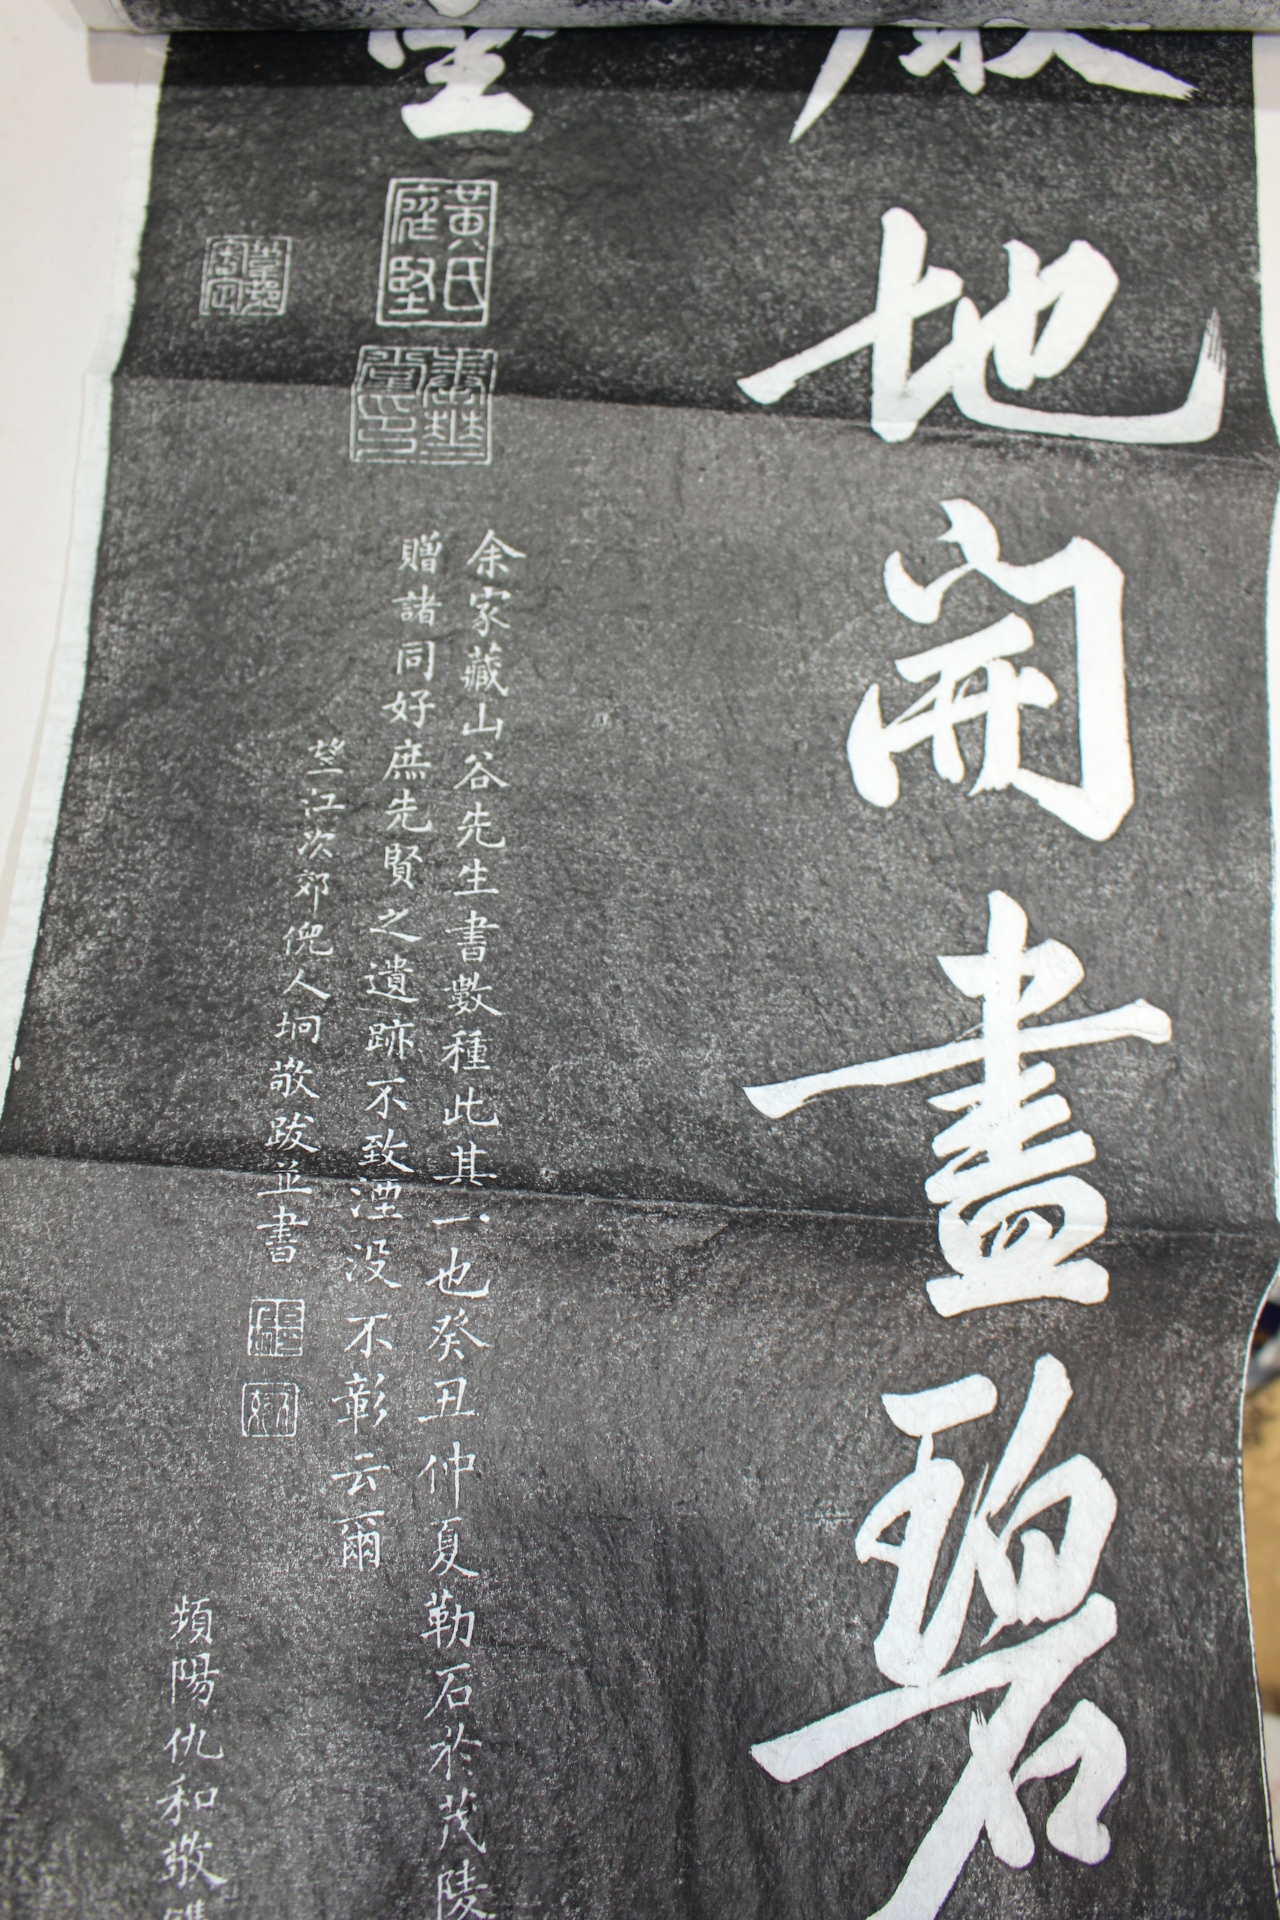 地開畫碧
黃氏
庭堅
余家藏山谷先生書數種此其一也癸丑仲夏勒石於茂陵
贈諸同好庶先賢之遺跡不致湮没不彰云爾
望江次郊倪人坰敬跋並書
頻陽仇和敬